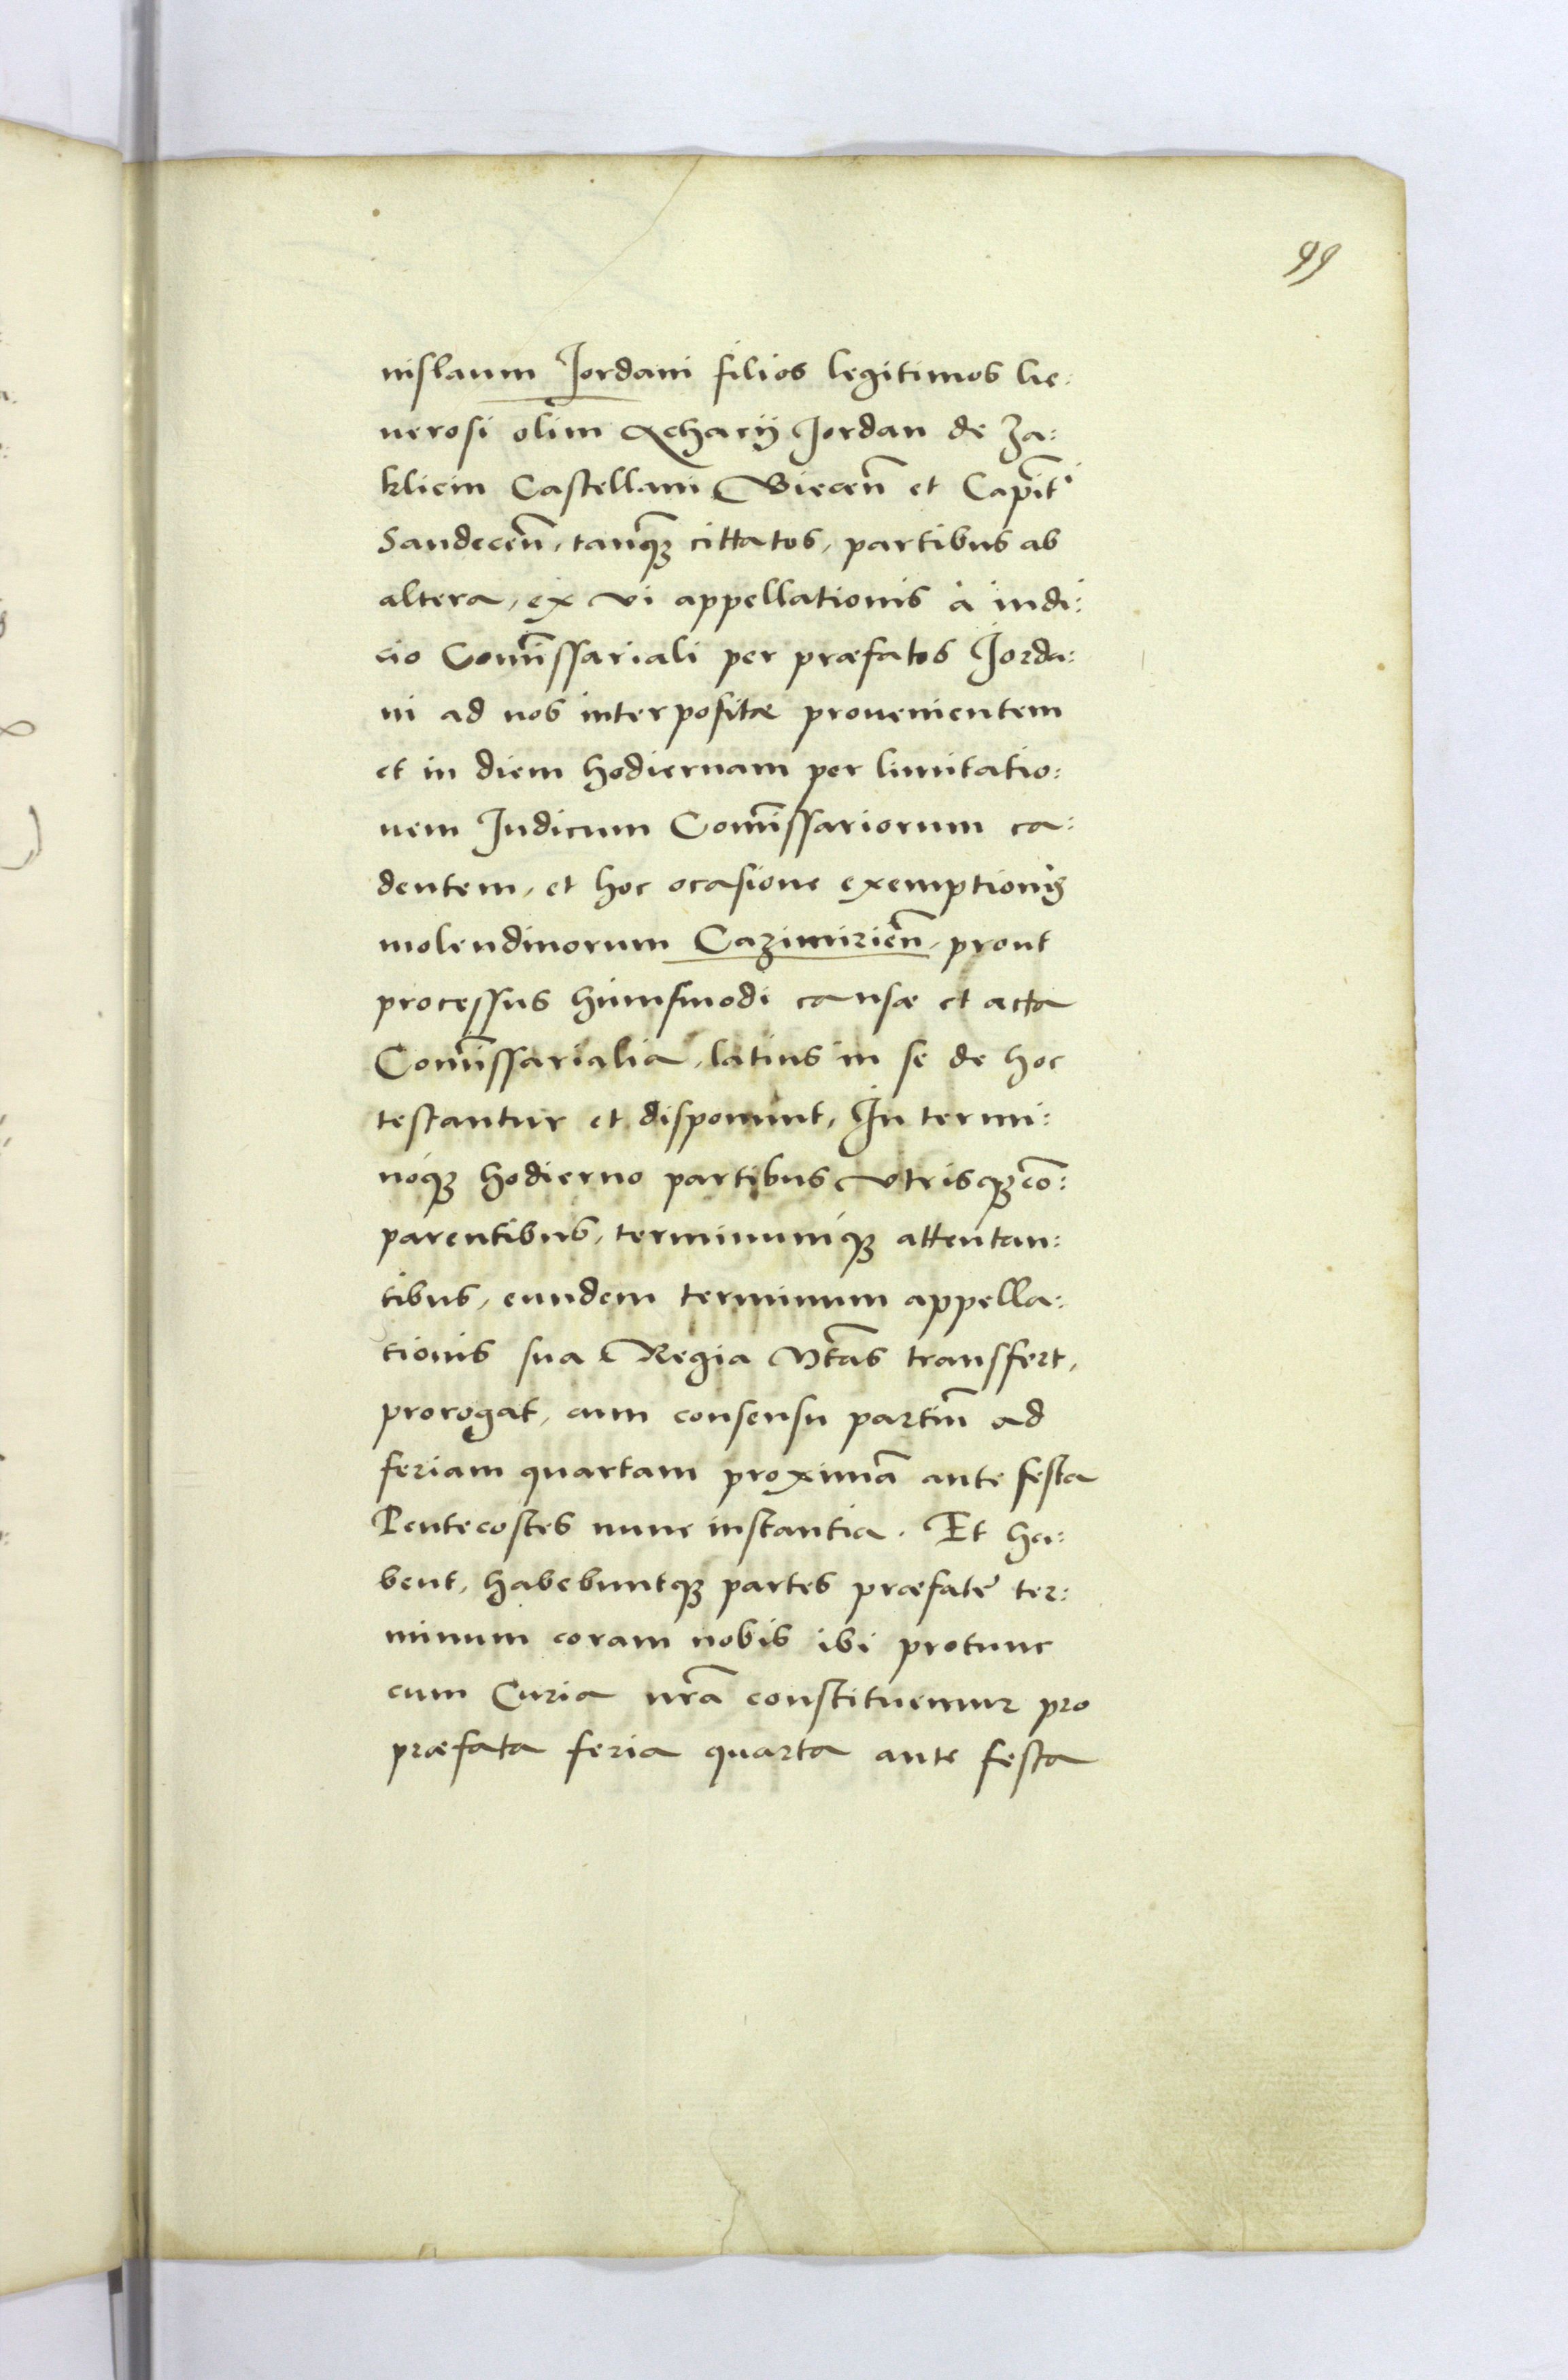 99
nislaum Jordani filios legitimos Ge:
nerosi olim Achacÿ Jordan de Za:
klicin Castellani Bieceñ et Capit̃
Sandeceñ, tanq̃ꝫ cittatos, partibus ab
altera, ex vi appellationis à iudi:
cio Com̃issariali per præfatos Jorda:
ni ad nos interpositæ prouenientem
et in diem hodiernam per limitatio:
nem Judicum Com̃issariorum ca:
dentem, et hoc ocasione exemptionis
molendinorum Cazimirieñ, prout
processus huiusmodi causæ et acta
Com̃issarialia, latius in se de hoc
testantur et disponunt, In termi:
nóqꝫ hodierno partibus vtrisqꝫ cõ:
parentibus, terminumqꝫ attentan:
tibus, eundem terminum appella:
tionis sua Regia Mtãs transfert,
prorogat, cum consensu partiũ ad
feriam quartam proximã ante festa
Pentecostes nunc instantia. Et ha:
bent, habebuntqꝫ partes præfate ter:
minum coram nobis ibi protunc
cum Curia nrã constituemur pro
præfata feria quarta ante festa